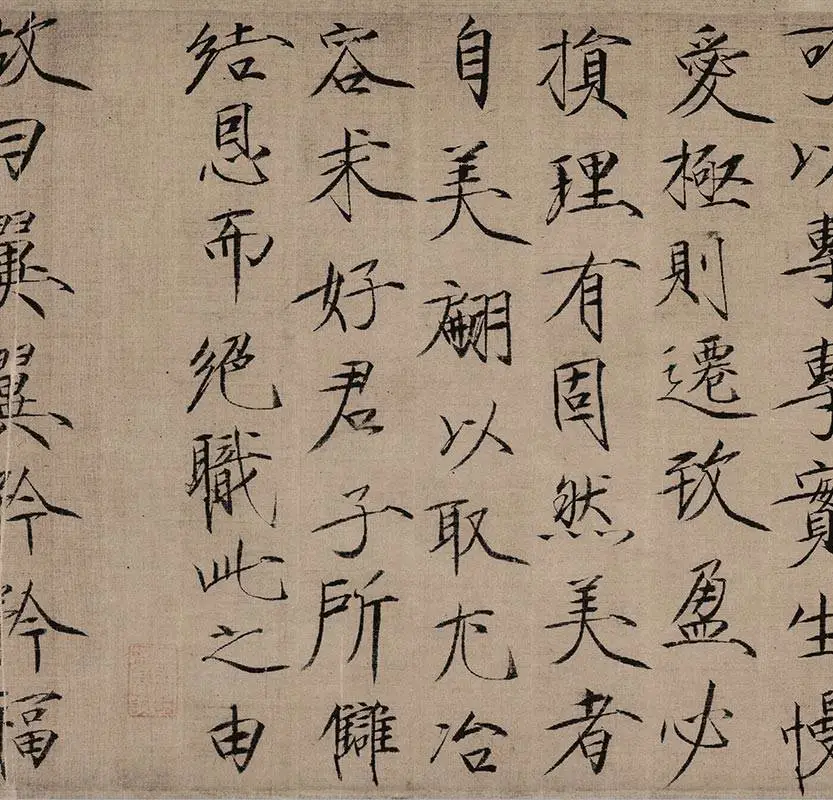 可以專專實生慢
愛極則遷致盈必
損理有固然美者
自美翩以取尤冶
容求好君子所讎
結恩而絕職此之由
故曰翼翼矜矜福